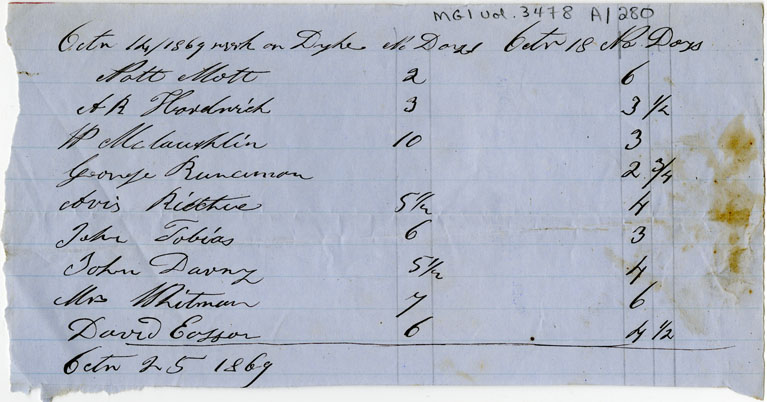 MG1 Vol. 3478 A/280
Octr 14/1869 work on Dyke No Days Octr 18 No Days
Nott Mott 2 6
A R Hardwick 3 3 1/2
W McLaughlin 10 3
George Runciman 2 3/4
Avis 5 1/2 4
John Tobias 6 3
John Davny 5 1/2 4
Mrs Whitman 7 6
David Easson 6 4 1/2
Octr 25 1869